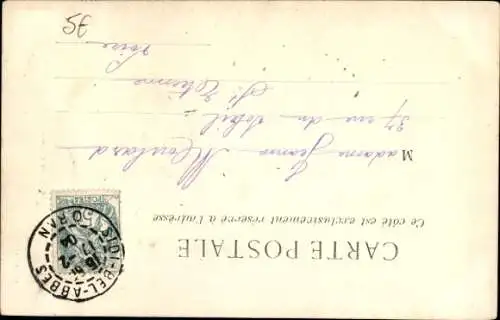 CARTE POSTALE
Ce côté est exclusivement réservé à l'adresse
Madame Jeanne
37 rue du Soleil
St Etienne
Loire
SIDI-BEL-ABBES
ORAN
5€